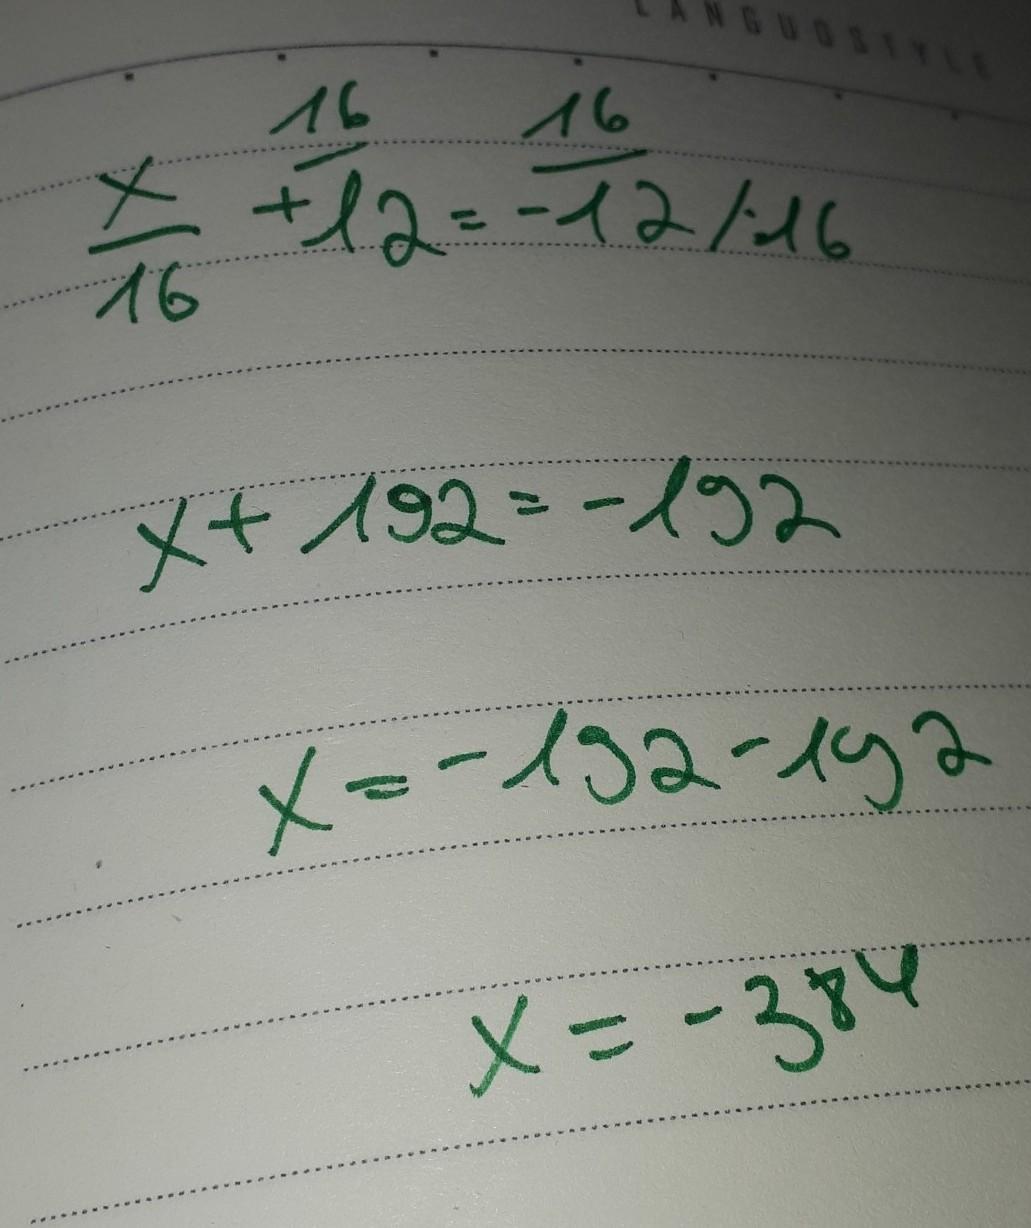 LANGUOSTYLE
16 16
x/16 +12 = -12 /·16
x + 192 = -192
x = -192 - 192
x = -384